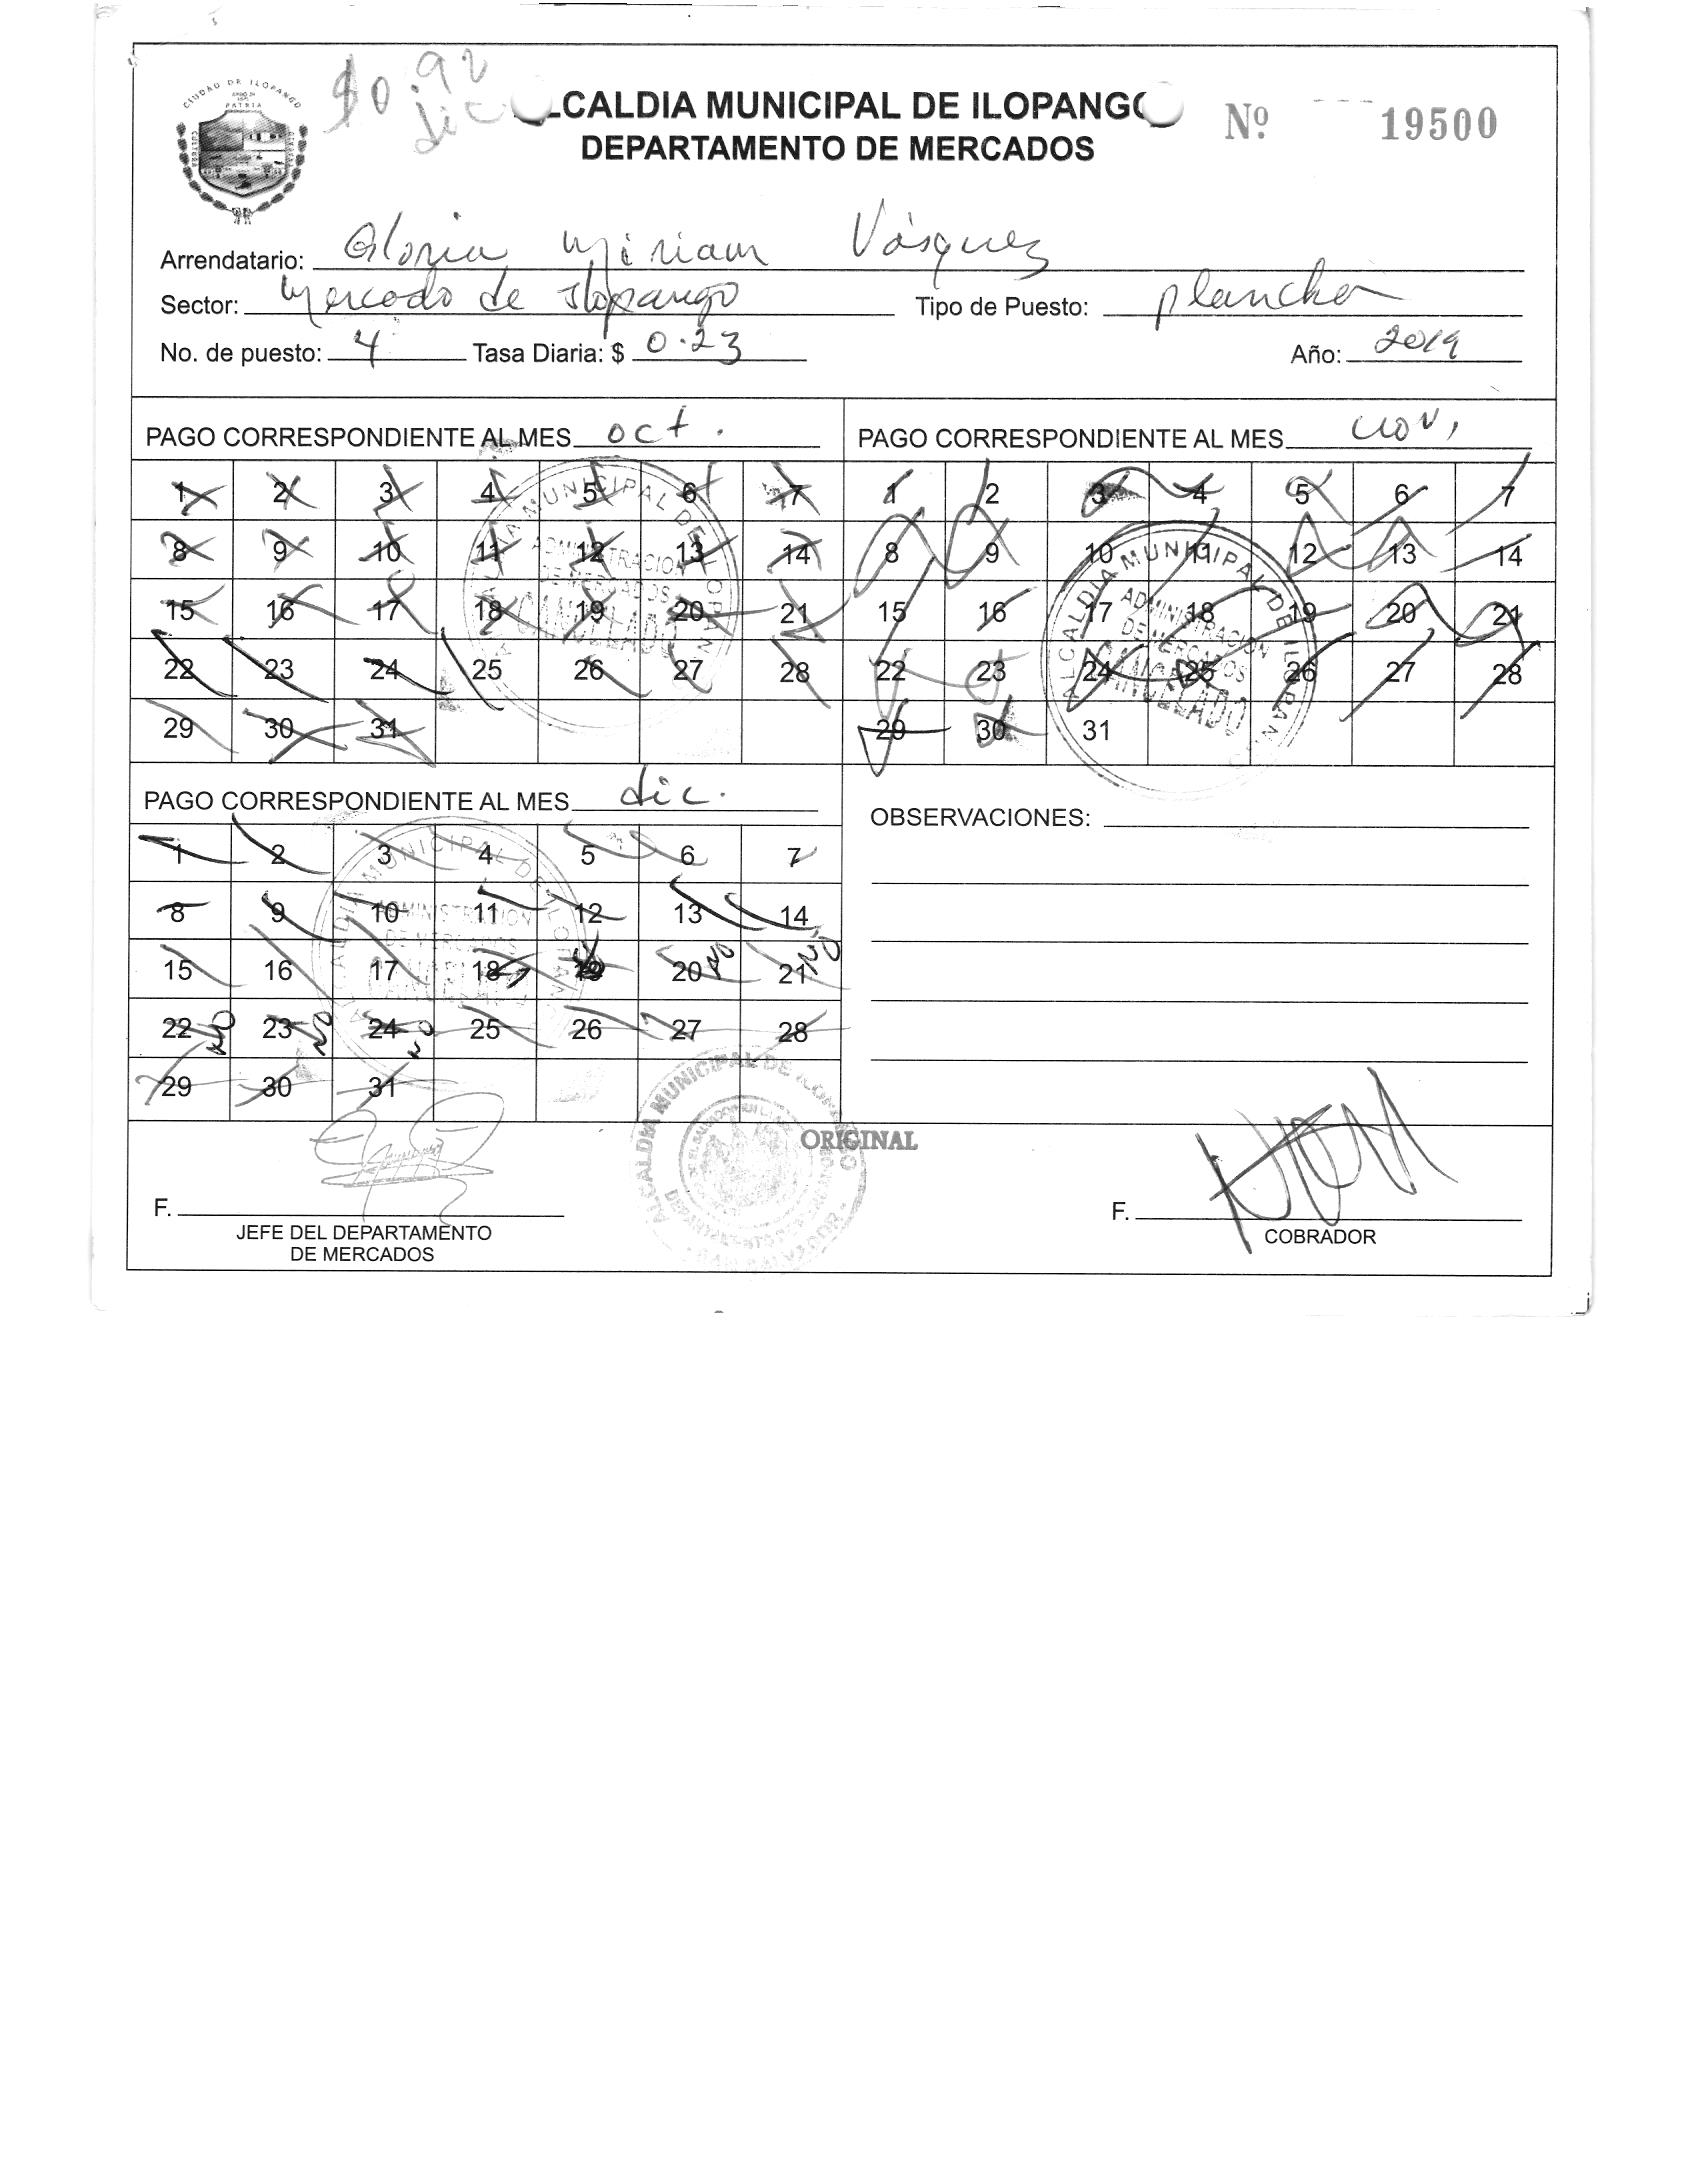 CIUDAD DE ILOPANGO
PATRIA
CULTURA
$0.92
dic
LCALDIA MUNICIPAL DE ILOPANGO
DEPARTAMENTO DE MERCADOS
Nº 19500
Arrendatario: Gloria Miriam Vásquez
Sector: Mercado de Ilopango Tipo de Puesto: plancha
No. de puesto: 4 Tasa Diaria: $ 0.23 Año: 2019
PAGO CORRESPONDIENTE AL MES oct.
1 2 3 4 5 6 7
8 9 10 11 12 13 14
15 16 17 18 19 20 21
22 23 24 25 26 27 28
29 30 31
ALCALDIA MUNICIPAL DE ILOPANGO
ADMINISTRACION
DE MERCADOS
CANCELADO
PAGO CORRESPONDIENTE AL MES nov,
1 2 3 4 5 6 7
8 9 10 11 12 13 14
15 16 17 18 19 20 21
22 23 24 25 26 27 28
29 30 31
ALCALDIA MUNICIPAL DE ILOPANGO
ADMINISTRACION
DE MERCADOS
CANCELADO
PAGO CORRESPONDIENTE AL MES dic.
1 2 3 4 5 6 7
8 9 10 11 12 13 14
15 16 17 18 19 20 NO 21 NO
22 NO 23 NO 24 NO 25 26 27 28
29 30 31
ALCALDIA MUNICIPAL DE ILOPANGO
ADMINISTRACION
DE MERCADOS
CANCELADO
OBSERVACIONES:
ALCALDIA MUNICIPAL DE ILOPANGO
SAN SALVADOR
ORIGINAL
F.
JEFE DEL DEPARTAMENTO
DE MERCADOS
F.
COBRADOR